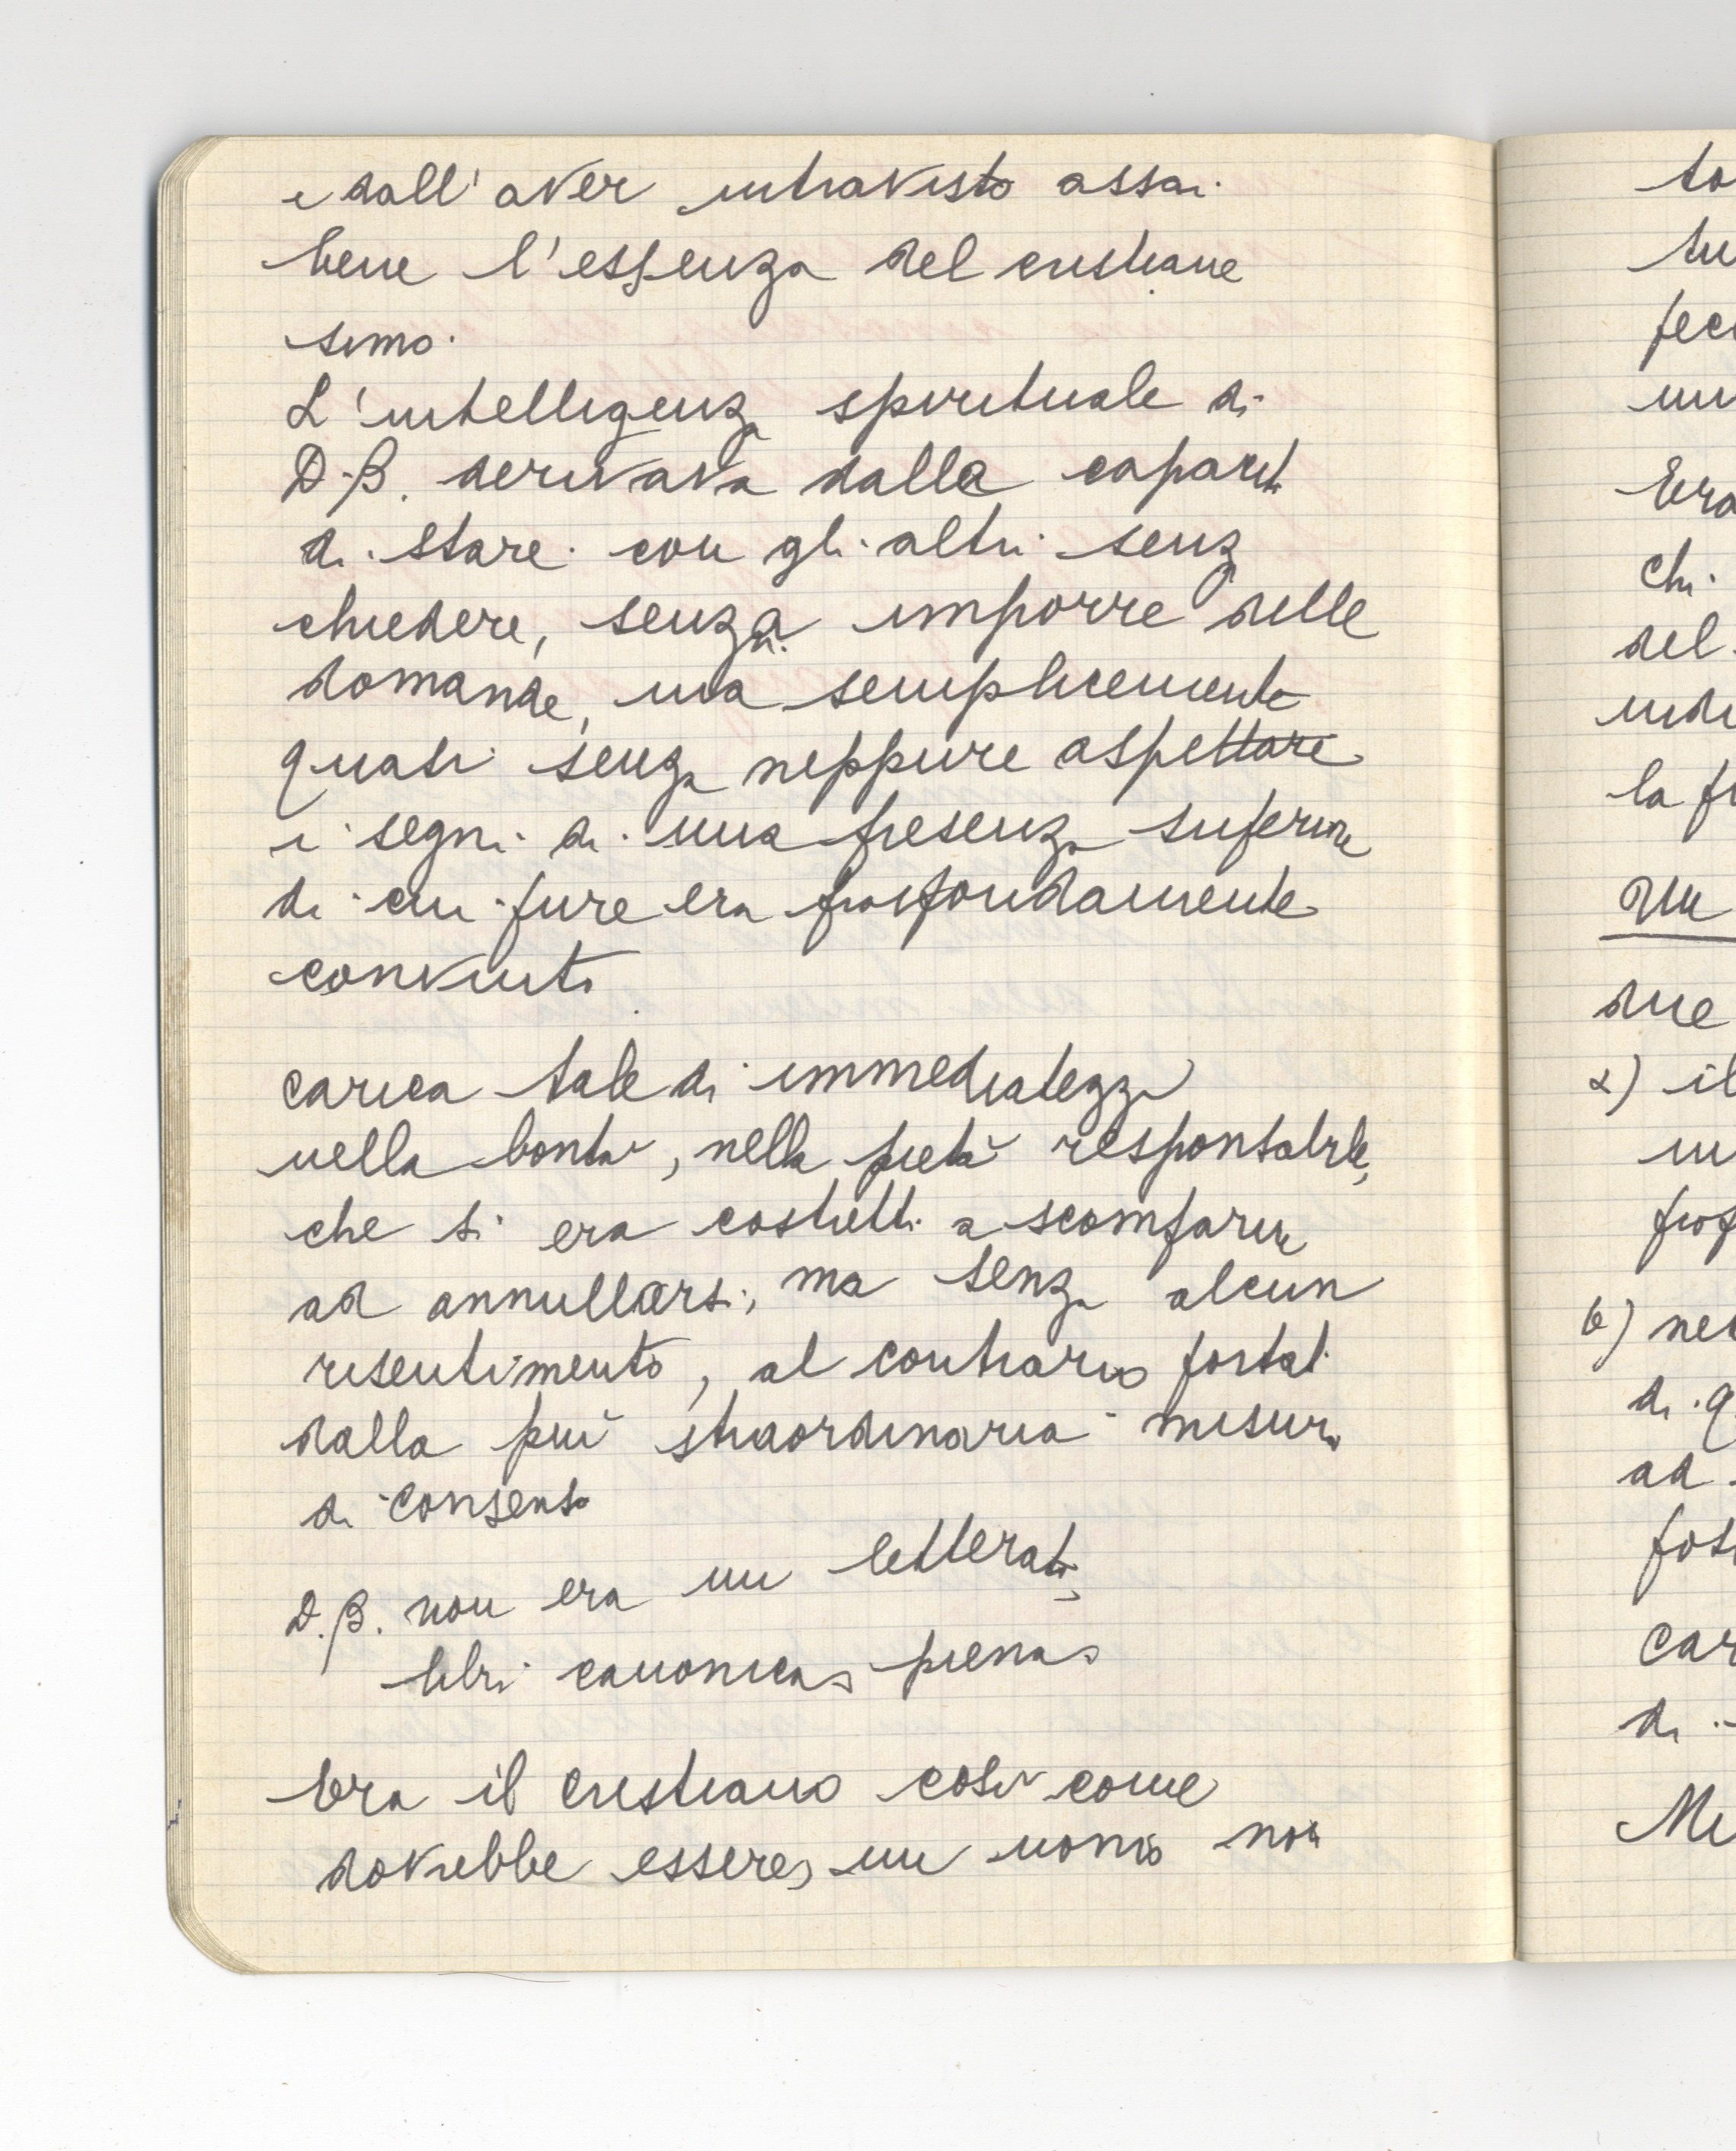 e dall'aver intravisto assai
bene l'essenza del cristiane
simo.
L'intelligenza spirituale di
D.B. derivava dalla capacità
di stare con gli altri senza
chiedere, senza imporre delle
domande, ma semplicemente
quasi senza neppure aspettare
i segni di una presenza superiore
di cui pure era profondamente
convinto
carica tale di immediatezza
nella bontà, nella pietà responsabile,
che si era costretti a scomparire
ad annullarsi, ma senza alcun
risentimento, al contrario portati
dalla più straordinaria misura
di consenso
D.B. non era un letterato,
libri canonica piena
Era il cristiano così come
dovrebbe essere, un uomo non
to
tu
fec
Era
chi
del
indi
la fi
Un
due
a) il
in
prof
b) ne
di q
ad
fos
car
di
Mi